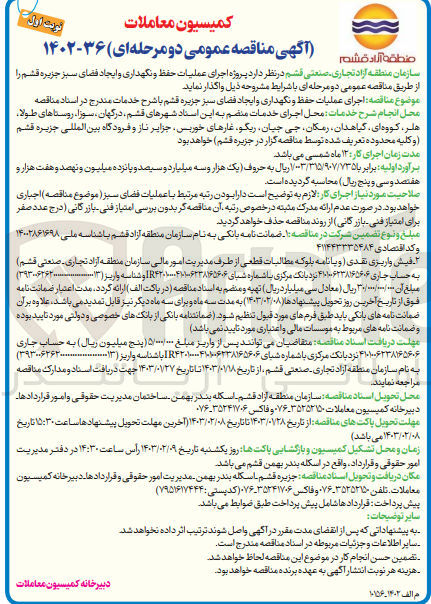 کمیسیون معاملات
نوبت اول
(آگهی مناقصه عمومی دو مرحله‌ای) ۳۶-۱۴۰۲
منطقه آزاد قشم
سازمان منطقه آزاد تجاری-صنعتی قشم در نظر دارد پروژه اجرای عملیات حفظ و نگهداری و ایجاد فضای سبز جزیره قشم را
از طریق مناقصه عمومی دو مرحله ای با شرایط مشروحه ذیل واگذار نماید.
موضوع مناقصه: اجرای عملیات حفظ و نگهداری و ایجاد فضای سبز جزیره قشم با شرح خدمات مندرج در اسناد مناقصه
محل انجام شرح خدمات: محل اجرای خدمات منضم به این اسناد شهرهای قشم، درگهان، سوزا، روستاهای طولا،
هلر، کووه‌ای، گیاهدان، رمکان، جی جیان، ریگو، غارهای خوربس، جزایر ناز و فرودگاه بین المللی جزیره قشم
(و کلیه محدوده تعریف شده توسط مناقصه گزار در جزیره قشم) خواهد بود
مدت زمان اجرای کار: ۱۲ ماه شمسی می باشد.
برآورد اولیه: برابر با ۱/۰۰۳/۳۱۵/۹۰۷/۷۳۵ ریال به حروف (یک هزار و سه میلیارد و سیصد و پانزده میلیون و نهصد و هفت هزار و
هفتصد و سی و پنج ریال) محاسبه گردیده است.
صلاحیت مورد نیاز اجرای کار: لازم به توضیح است دارا بودن رتبه مرتبط با عملیات فضای سبز (موضوع مناقصه) اجباری
خواهد بود در صورت عدم ارائه مدرک مثبته در خصوص رتبه، آن مناقصه گر بدون بررسی امتیاز فنی-بازرگانی (درج عدد صفر
برای امتیاز فنی-بازرگانی) از روند مناقصه حذف خواهد گردید.
مبلغ و نوع تضمین شرکت در مناقصه: ۱-ضمانت نامه بانکی به نام سازمان منطقه آزاد قشم با شناسه ملی ۱۴۰۰۲۸۶۱۶۹۸
و کد اقتصادی ۴۱۱۴۴۳۳۳۵۴۸۴
۲-فیش واریزی نقدی (و یا نامه بلوکه مطالبات قطعی از طرف مدیریت امور مالی سازمان منطقه آزاد تجاری-صنعتی قشم)
مبلغ آن ۳۰/۰۰۰/۰۰۰/۰۰۰ ریال (معادل سی میلیارد ریال) تهیه و منضم به اسناد مناقصه (در پاکت الف) ارائه گردد، مدت اعتبار ضمانت نامه
فوق از تاریخ آخرین روز تحویل پیشنهادها (۱۴۰۳/۰۲/۰۸) به مدت سه ماه و برای سه ماه دیگر نیز قابل تمدید می باشد، علاوه بر آن
ضمانت نامه های بانکی باید طبق فرم های مورد قبول تنظیم شود. (ضمانتنامه بانکی از بانک های خصوصی و دولتی مورد تایید بوده
و ضمانت نامه های مربوط به موسسات مالی و اعتباری مورد تایید نمی باشد)
مهلت دریافت اسناد مناقصه: متقاضیان می توانند پس از واریز مبلغ ۵/۰۰۰/۰۰۰ (پنج میلیون ریال) به حساب جاری
به نام سازمان منطقه آزاد تجاری-صنعتی قشم، از تاریخ ۱۴۰۳/۰۱/۱۸ تا تاریخ ۱۴۰۳/۰۱/۲۷ جهت دریافت اسناد و مدارک مناقصه
مراجعه نمایند.
محل تحویل اسناد مناقصه: سازمان منطقه آزاد قشم-اسکله بندر بهمن-ساختمان مدیریت حقوقی و امور قراردادها-
دبیرخانه کمیسیون معاملات ۳۵۲۵۲۱۵۰-۰۷۶ و فاکس ۳۵۲۴۱۷۰۶-۰۷۶
مهلت تحویل پاکت های مناقصه: از تاریخ ۱۴۰۳/۰۱/۲۸ تا تاریخ ۱۴۰۳/۰۲/۰۸ (آخرین مهلت تحویل پیشنهادها ساعت ۱۵:۳۰ تاریخ
۱۴۰۳/۰۲/۰۸ می باشد)
زمان و محل تشکیل کمیسیون و بازگشایی پاکت ها: روز یکشنبه تاریخ ۱۴۰۳/۰۲/۰۹ رأس ساعت ۱۴:۳۰ در دفتر مدیریت
امور حقوقی و قرارداد، واقع در اسکله بندر بهمن قشم می باشد.
مکان دریافت و تحویل اسناد مناقصه: جزیره قشم-اسکله بندر بهمن-مدیریت امور حقوقی و قراردادها-دبیرخانه کمیسیون
معاملات-تلفن ۳۵۲۵۲۱۵۰-۰۷۶ و فاکس ۳۵۲۴۱۷۰۶-۰۷۶ (کدپستی: ۷۹۵۱۶۱۷۴۴۴)
پیش پرداخت: قراردادها شامل پیش پرداخت طبق ضوابط می باشد.
سایر توضیحات:
-به پیشنهاداتی که پس از انقضای مدت مقرر در آگهی واصل شوند ترتیب اثر داده نخواهد شد.
-سایر اطلاعات و جزئیات مربوطه در اسناد مناقصه مندرج است.
-تضمین حسن انجام کار در موضوع این مناقصه لحاظ خواهد شد.
-هزینه هر نوبت انتشار آگهی به عهده برنده مناقصه خواهد بود.
دبیرخانه کمیسیون معاملات
م الف ۱۴۰۲-۱۰۱۵۶